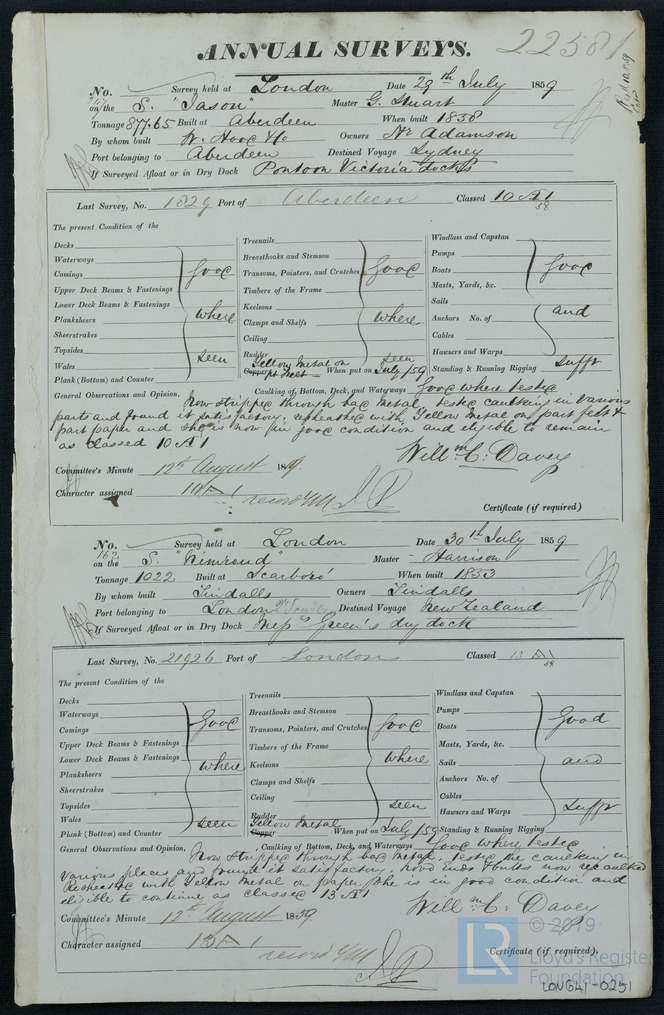 ANNUAL SURVEYS.
22581
No. Survey held at London Date 29th July 1859
on the S. "Jason" Master G. Stuart
Tonnage 877.65 Built at Aberdeen When built 1858
By whom built W. Hood & Co Owners Adamson
Port belonging to Aberdeen Destined Voyage Sydney
If Surveyed Afloat or in Dry Dock Pontoon Victoria Docks
Last Survey, No. 1829 Port of Aberdeen Classed 10 A 1
58
The present Condition of the
Decks
Waterways
Comings
Upper Deck Beams & Fastenings
Lower Deck Beams & Fastenings
Planksheers
Sheerstrakes
Topsides
Wales
Plank (Bottom) and Counter
good
where
seen
Treenails
Breasthooks and Stemson
Transoms, Pointers, and Crutches
Timbers of the Frame
Keelsons
Clamps and Shelfs
Ceiling
Rudder
Copper Yellow Metal on pt Felt When put on July /59
good
where
seen
Windlass and Capstan
Pumps
Boats
Masts, Yards, &c.
Sails
Anchors No. of
Cables
Hawsers and Warps
Standing & Running Rigging
good
and
sufft
General Observations and Opinion, Caulking of Bottom, Deck, and Waterways good where tested
Now stripped through bad metal, tested caulking in various
parts and found it satisfactory, resheathed with Yellow Metal on part felt &
part paper and she is now in good condition and eligible to remain
as classed 10 A 1
Willm. C. Davey
Committee's Minute 12th August 1859.
Character assigned 10 A 1
Certificate (if required)
No. 162 Survey held at London Date 30th July 1859
on the S. "Nimroud" Master Harrison
Tonnage 1022 Built at Scarboro' When built 1853
By whom built Tindalls Owners Tindalls
Port belonging to London Destined Voyage New Zealand
If Surveyed Afloat or in Dry Dock Messrs Green's dry dock
Last Survey, No. 21926 Port of London Classed 13 A 1
58
The present Condition of the
Decks
Waterways
Comings
Upper Deck Beams & Fastenings
Lower Deck Beams & Fastenings
Planksheers
Sheerstrakes
Topsides
Wales
Plank (Bottom) and Counter
good
where
seen
Treenails
Breasthooks and Stemson
Transoms, Pointers, and Crutches
Timbers of the Frame
Keelsons
Clamps and Shelfs
Ceiling
Rudder
Copper Yellow Metal When put on July /59
good
where
seen
Windlass and Capstan
Pumps
Boats
Masts, Yards, &c.
Sails
Anchors No. of
Cables
Hawsers and Warps
Standing & Running Rigging
Good
and
sufft
General Observations and Opinion, Caulking of Bottom, Deck, and Waterways good where tested
Now stripped through bad metal, tested the caulking in
various places and found it satisfactory, Hood Ends & butts now recaulked
Resheathed with Yellow Metal on paper, she is in good condition and
elible to continue as classed 13 A 1
Willm. C. Davey
Committee's Minute 12th August 1859.
Character assigned 13 A 1
Certificate (if required).
© 2019
LR Lloyd's Register
Foundation
LON641-0251